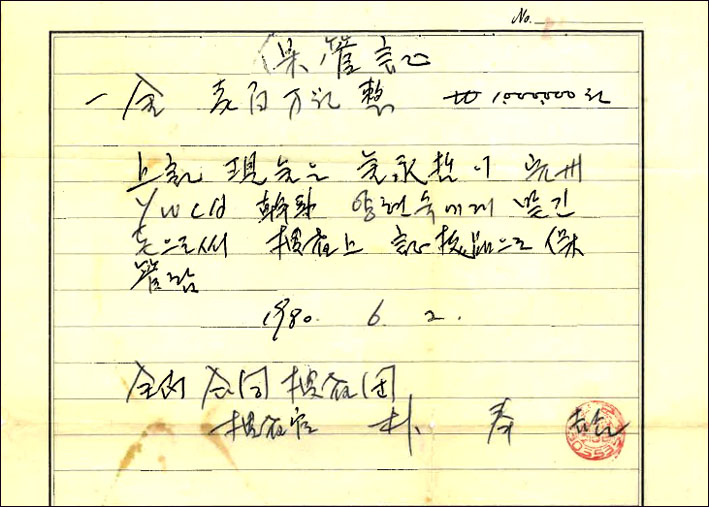 No.
保管証
一金 壱百万원整 ₩1,000,000원
上記 現金은 金永哲이 光州
YWCA 幹事 양현숙에게 맡긴
돈으로써 捜査上 証拠品으로 保
管함
1980. 6. 2.
合同 捜査団
捜査官 朴